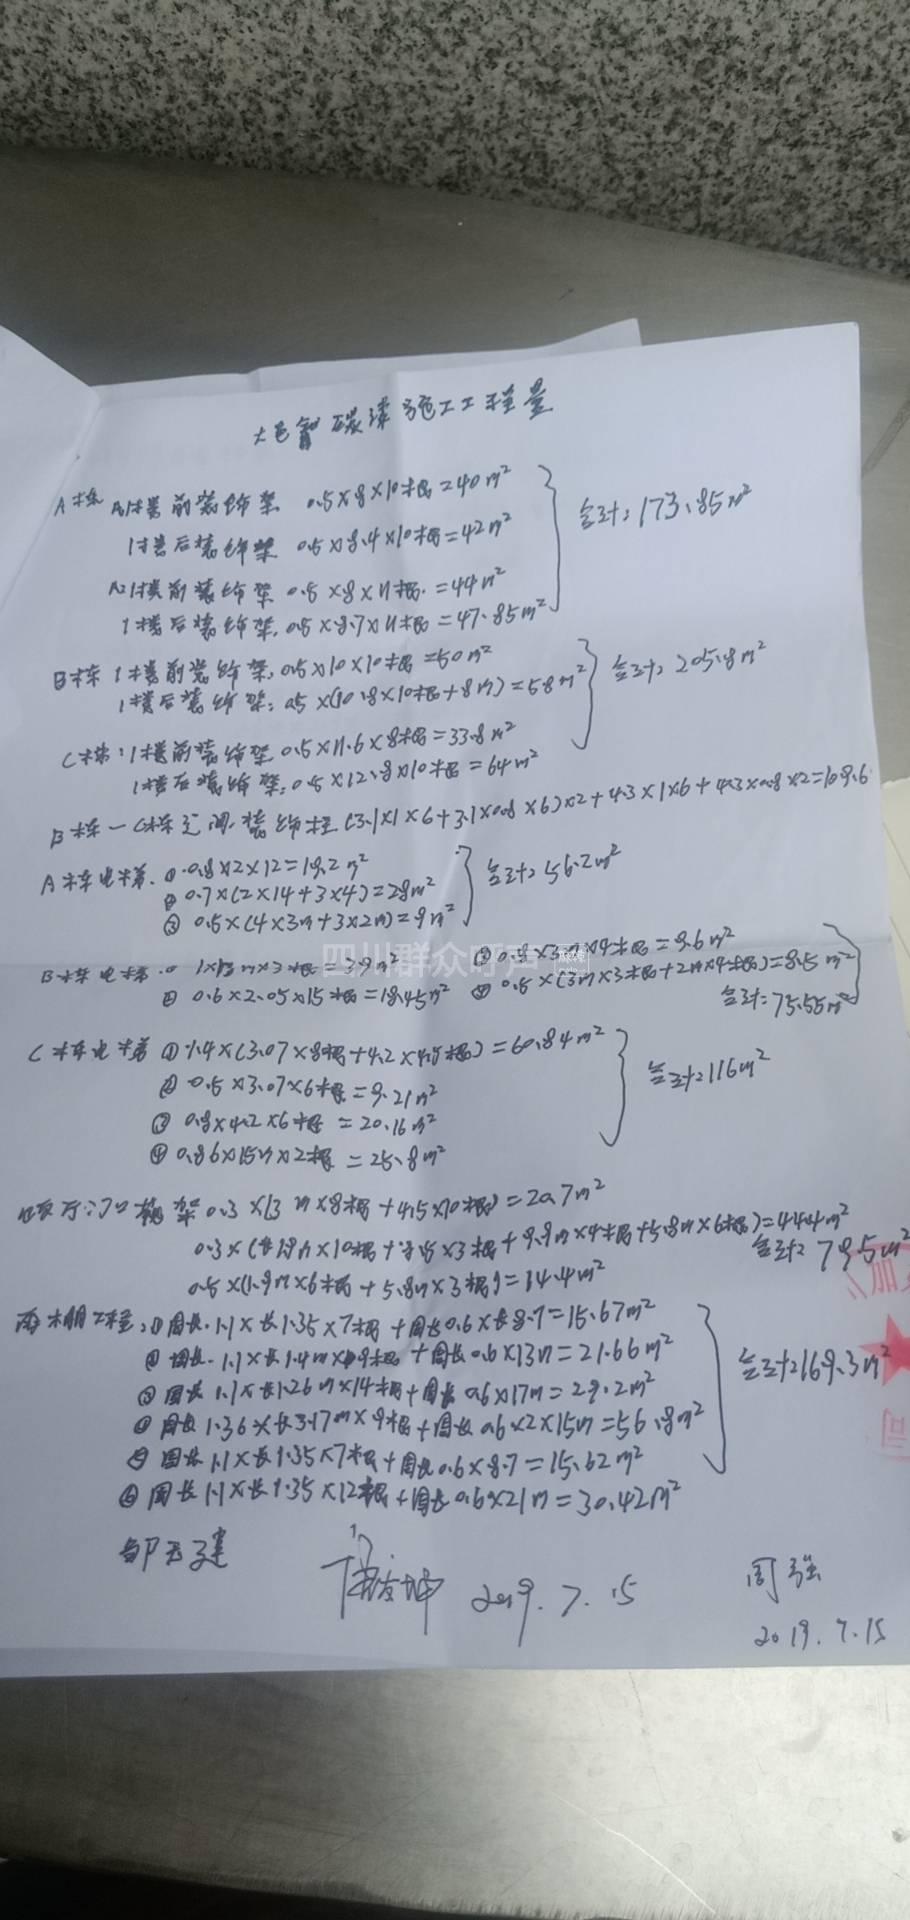 大邑氟碳漆施工工程量
A栋 A1楼前装饰架 0.5×8×10根=40m²
1楼后装饰架 0.5×8.4×10根=42m²
合计:173.85m²
A2 1楼前装饰架 0.5×8×11根.=44m²
1楼后装饰架.0.5×8.7×11根=47.85m²
B栋 1楼前装饰架.0.5×10×10根=50m²
1楼后装饰架:0.5×(10.8×10根+8m)=58m²
合计:205.8m²
C栋:1楼前装饰架0.5×11.6×8根=33.8m²
1楼后装饰架:0.5×12.8×10根=64m²
B栋-C栋之间.装饰柱(3.1×1×6+3.1×0.8×6)×2+4.3×1×6+4.3×0.8×2=109.6
A栋电梯.①0.8×2×12=19.2m²
②0.7×(2×14+3×4)=28m²
③0.5×(4×3m+3×2m)=9m²
合计:56.2m²
B栋电梯.① 1×13m×3根=39m²
②0.6×2.05×15根=18.45m²
③0.8×3m×4根=9.6m²
④0.5×(3m×3根+2m×4根)=8.5m²
合计:75.55m²
C栋电梯①1.4×(3.07×8根+4.2×4.5根)=60.84m²
②0.5×3.07×6根=9.21m²
③0.8×4.2×6根=20.16m²
④0.86×15m×2根=25.8m²
合计:116m²
门口 架0.3×(3m×8根+4.5×10根)=20.7m²
×10根+ ×3根+9.9m×4根+5.8m×6根)=44.4m²
合计:79.5m²
0.5×(1.9m×6根+5.8m×3根)=14.4m²
雨棚工程:①周长.1.1×长1.35×7根+周长0.6×长8.7=15.67m²
②周长.1.1×长1.4m×9根+周长0.6×13m=21.66m²
③周长1.1×长1.26m×14根+周长0.6×17m=29.2m²
④周长1.36×长3.17m×9根+周长0.6×2×15m=56.8m²
⑤周长1.1×长1.35×7根+周长0.6×8.7=15.62m²
⑥周长1.1×长1.35×12根+周长0.6×21m=30.42m²
合计:169.3m²
2019.7.15
周强
2019.7.15
四川群众呼声